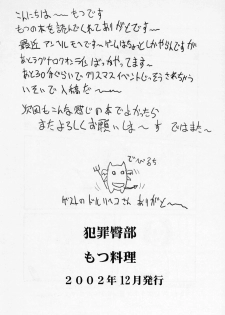 こんにちは～ もつです
もつの本を読んでくれてありがとです～
最近 アンソルモヘです～ ゲームはちょとしかやらんですが
あとラグナロクオンラインばっかやってます～
あと30分ぐらいでクリスマスイベントじっそうされちゃう
いそいで入稿だ～～
次回もこんな感じの本でよかったら
またよろしくお願いしま～す ではまた～
でべるち
ゲストの
さん ありがと～
犯罪臀部
もつ料理
2002年12月発行